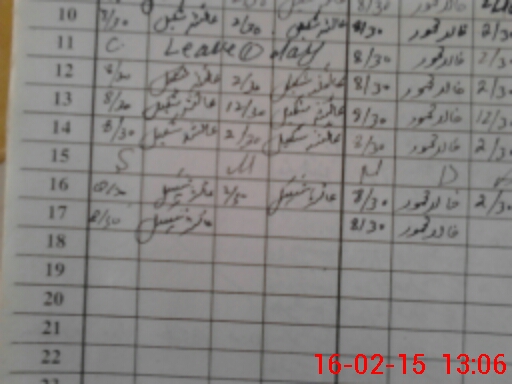 10 8/30 عائشہ شکیل 2/30 عائشہ شکیل 8/30 خالد محمود 2/30
11 C Leave 1 day 8/30 خالد محمود 2/30
12 8/30 عائشہ شکیل 2/30 عائشہ شکیل 8/30 خالد محمود 2/30
13 8/30 عائشہ شکیل 12/30 عائشہ شکیل 8/30 خالد محمود 12/30
14 8/30 عائشہ شکیل 2/30 عائشہ شکیل 8/30 خالد محمود 2/30
15 S U N D
16 8/30 عائشہ شکیل 2/30 عائشہ شکیل 8/30 خالد محمود 2/30
17 8/30 عائشہ شکیل 8/30 خالد محمود
18
19
20
21
22
16-02-15 13:06